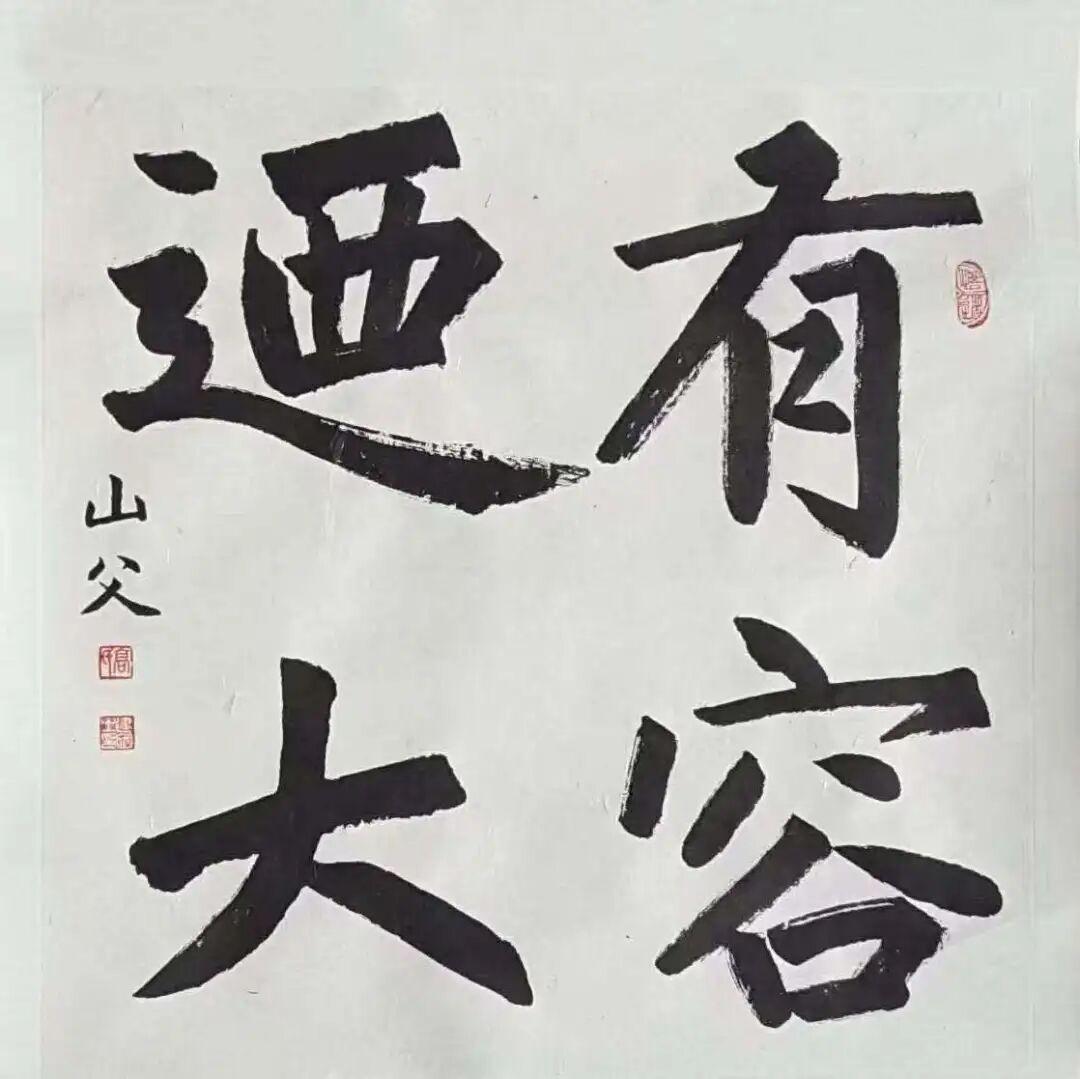 有容
迺大
山父